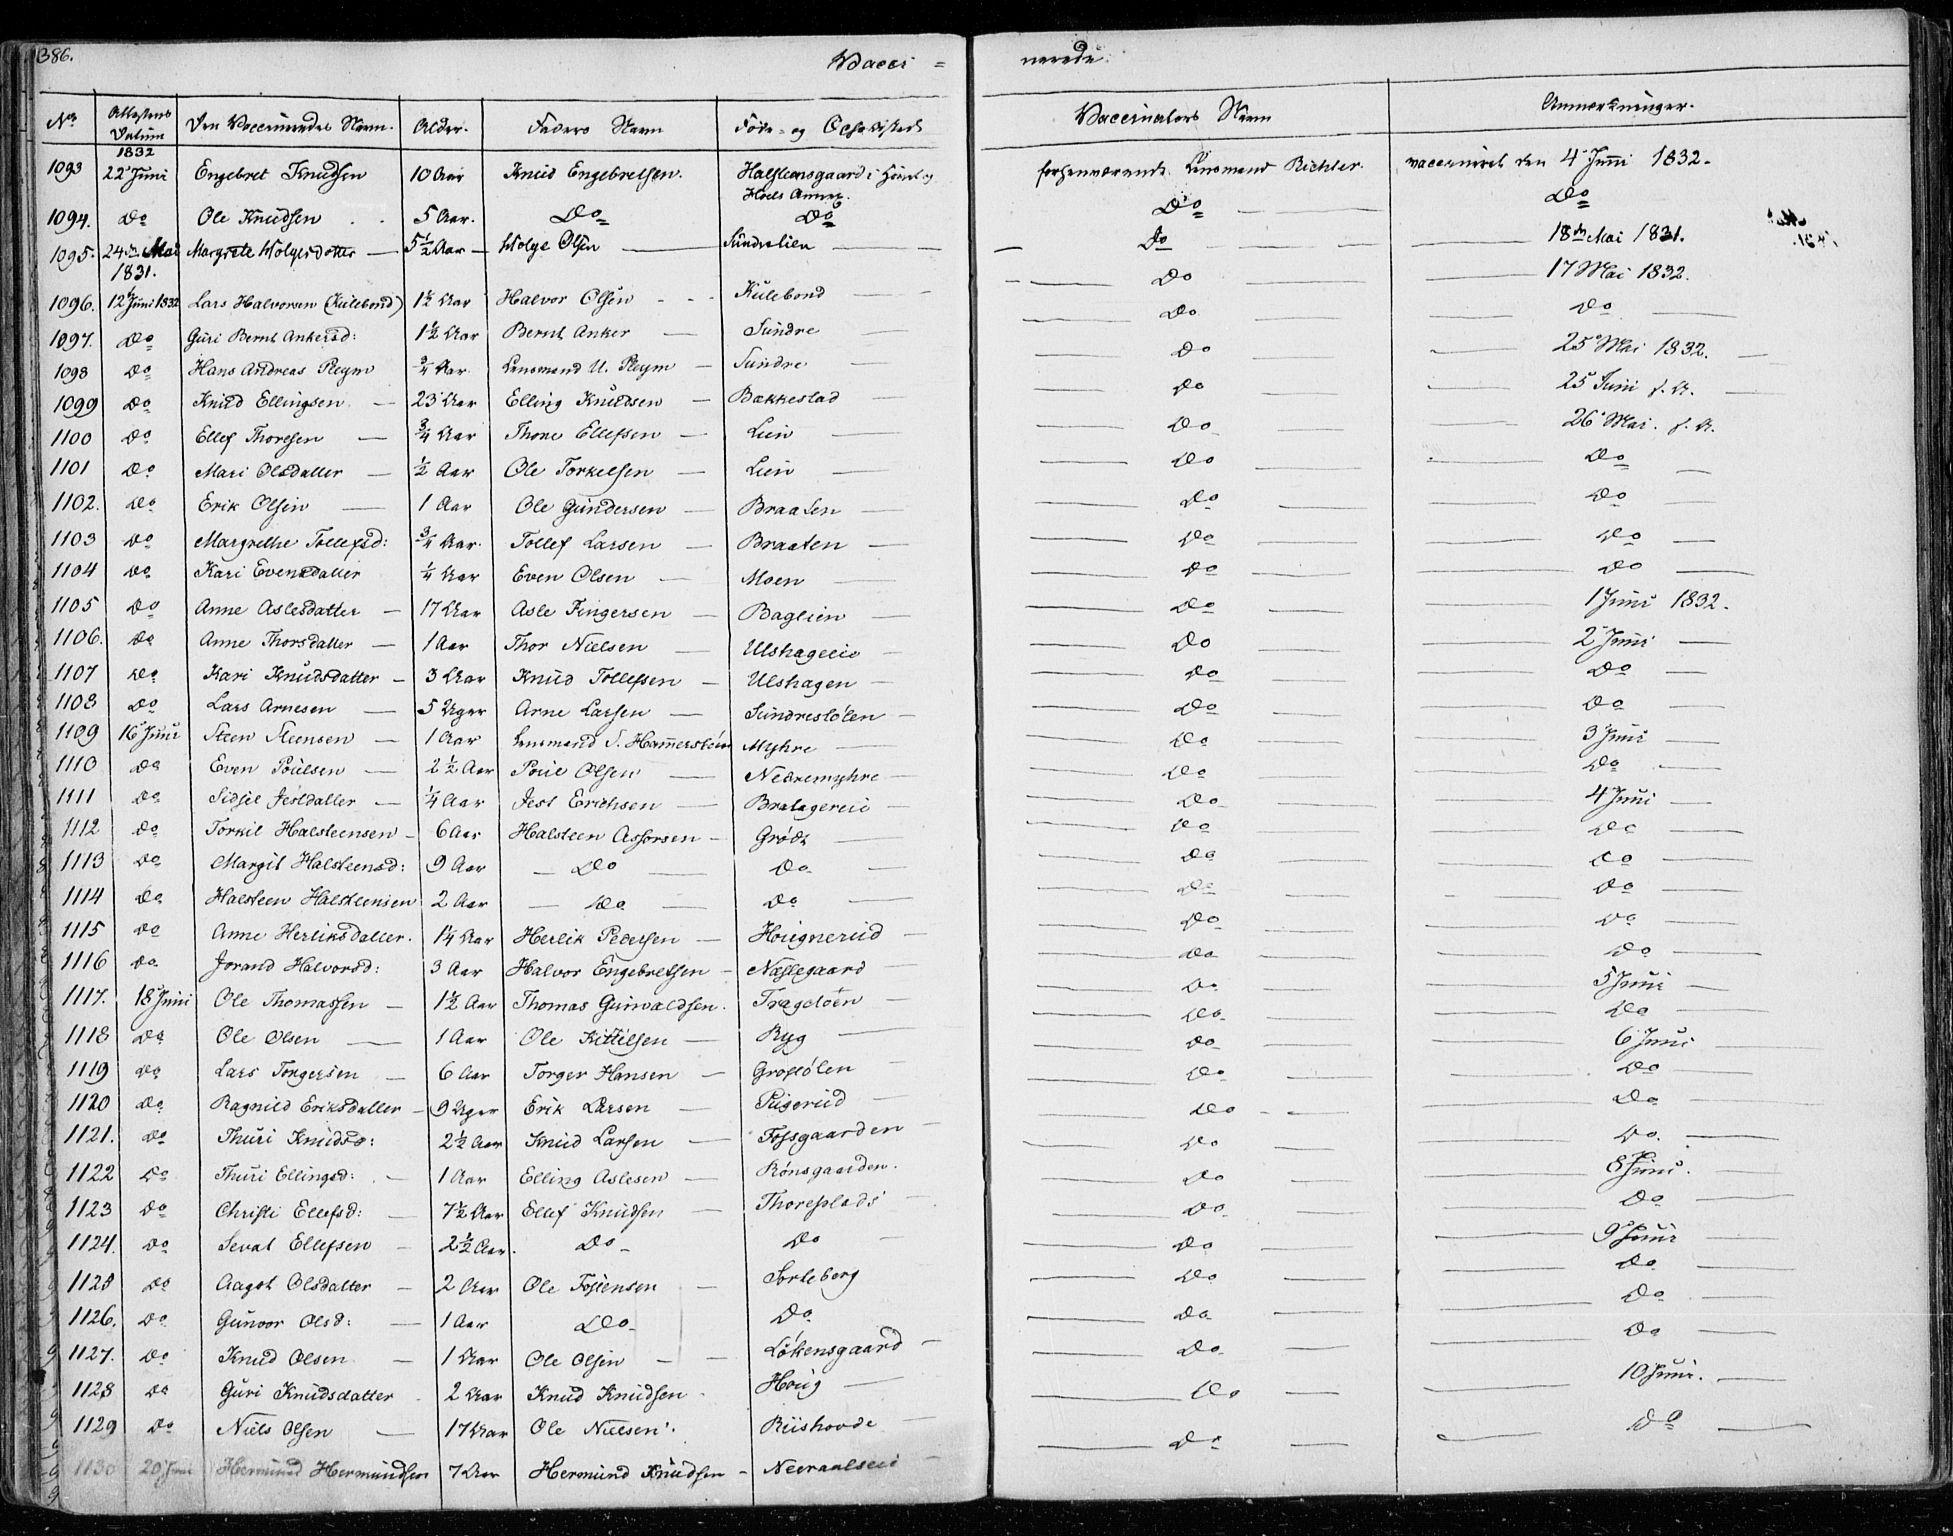 386.
Vacci = nerede.
No | Attestens Datum | Den Vaccineredes Navn. | Alder. | Faders Navn | Føde- og Opholdssted | Vaccinators Navn | Anmærkninger.
1832
1093 | 22 Juni | Engebret Knudsen | 10 Aar | Knud Engebretsen. | Halsteensgaard i | forhenværende Lensmand Richter. | vaccineret den 4 Juni 1832.
Hoels Annex.
1094. | Do | Ole Knudsen | 5 Aar. | Do | Do | Do | Do
1095. | 24de Mai | Margrete Holgersdotter | 5½ Aar | Holge Olsen | Sundrelien | Do | 18de Mai 1831.
1831.
1096. | 12 Juni 1832 | Lars Halvorsen (Kulebond) | 1½ Aar | Halvor Olsen | Kulebond | Do | 17 Mai 1832.
1097. | Do | Guri Bernt Ankersd: | 1½ Aar | Bernt Anker | Sundre | Do | Do
1098 | Do | Hans Andreas Pleym | ¾ Aar. | Lensmand U. Pleym | Sundre | Do | 25 Mai 1832.
1099 | Do | Knud Ellingsen | 23 Aar | Elling Knudsen | Bækkestad | Do | 25 Juni f. A.
1100 | Do | Ellef Thoresen | ¾ Aar | Thore Ellefsen | Lien | Do | 26 Mai. f. A.
1101 | Do | Mari Olsdatter | ½ Aar | Ole Torkelsen | Lien | Do | Do
1102. | Do | Erik Olsen | 1 Aar | Ole Gundersen | Braaten | Do | Do
1103 | Do | Margrethe Tollefsd: | ¾ Aar. | Tollef Larsen | Braaten | Do | Do
1104 | Do | Kari Evensdatter | ¼ Aar | Even Olsen | Moen | Do | Do
1105 | Do | Anne Aslesdatter | 17 Aar | Asle Fingersen | Baglien | Do | 1 Juni 1832.
1106. | Do | Anne Thorsdatter | 1 Aar | Thor Nielsen | Ulshageeie | Do | 2 Juni
1107 | Do | Kari Knudsdatter | 3 Aar | Knud Tollefsen | Ulshagen | Do | Do
1108 | Do | Lars Arnesen | 5 Uger | Arne Larsen | Sundrestølen | Do | Do
1109 | 16 Juni | Steen Steensen | 1 Aar | Lensmand S. Hammersbøen | Myhre | Do | 3 Juni
1110 | Do | Even Poulsen | 2½ Aar | Poul Olsen | Nedremyhre | Do | Do
1111 | Do | Sidsel Jestdatter | ¼ Aar | Jest Erichsen | Bratagereie | Do | 4 Juni
1112 | Do | Torkil Halsteensen | 6 Aar | Halsteen Assorsen | Grøth | Do | Do
1113 | Do | Margit Halsteensd: | 9 Aar | Do | Do | Do | Do
1114 | Do | Halsteen Halsteensen | 2 Aar | Do | Do | Do | Do
1115 | Do | Anne Herliksdatter. | 1¼ Aar | Herlik Pedersen | Hougnerud | Do | Do
1116 | Do | Jorand Halvorsd: | 3 Aar | Halvor Engebretsen | Næslegaard | Do | Do
1117. | 18 Juni | Ole Thomassen | 1½ Aar | Thomas Gunvaldsen. | Trageløen | Do | 5 Juni
1118 | Do | Ole Olsen | 1 Aar | Ole Kittilsen | Ryg | Do | Do
1119 | Do | Lars Torgersen | 6 Aar | Torger Hansen | Grostølen | Do | 6 Juni
1120 | Do | Ragnild Eriksdatter | 9 Uger | Erik Larsen | Pligerud | Do | Do
1121. | Do | Thuri Knudsd: | 2½ Aar | Knud Larsen | Fossgaarden | Do | Do
1122 | Do | Thuri Ellingsd: | 1 Aar | Elling Aslesen | Rønsgaarden. | Do | Do.
1123 | Do | Christi Ellefsd: | 7½ Aar | Ellef Knudsen | Thoresplads | Do | 8 Juni.
1124. | Do | Sevat Ellefsen | 2½ Aar. | Do | Do | Do | Do
1125 | Do | Aagot Olsdatter | 2 Aar | Ole Tostensen | Sorteberg | Do | 9 Juni
1126. | Do | Gunvor Olsd: | 1 Aar | Do | Do | Do | Do
1127. | Do | Knud Olsen | 1 Aar | Ole Olsen | Løkensgaard | Do | Do
1128 | Do | Guri Knudsdatter | 2 Aar | Knud Knudsen | Houg | Do | Do
1129 | Do | Niels Olsen | 17 Aar | Ole Nielsen | Riishovde | Do | 10 Juni.
1130 | 20 Juni | Hermund Hermundsen | 7 Aar | Hermund Knudsen | Neeraalseie | Do | Do